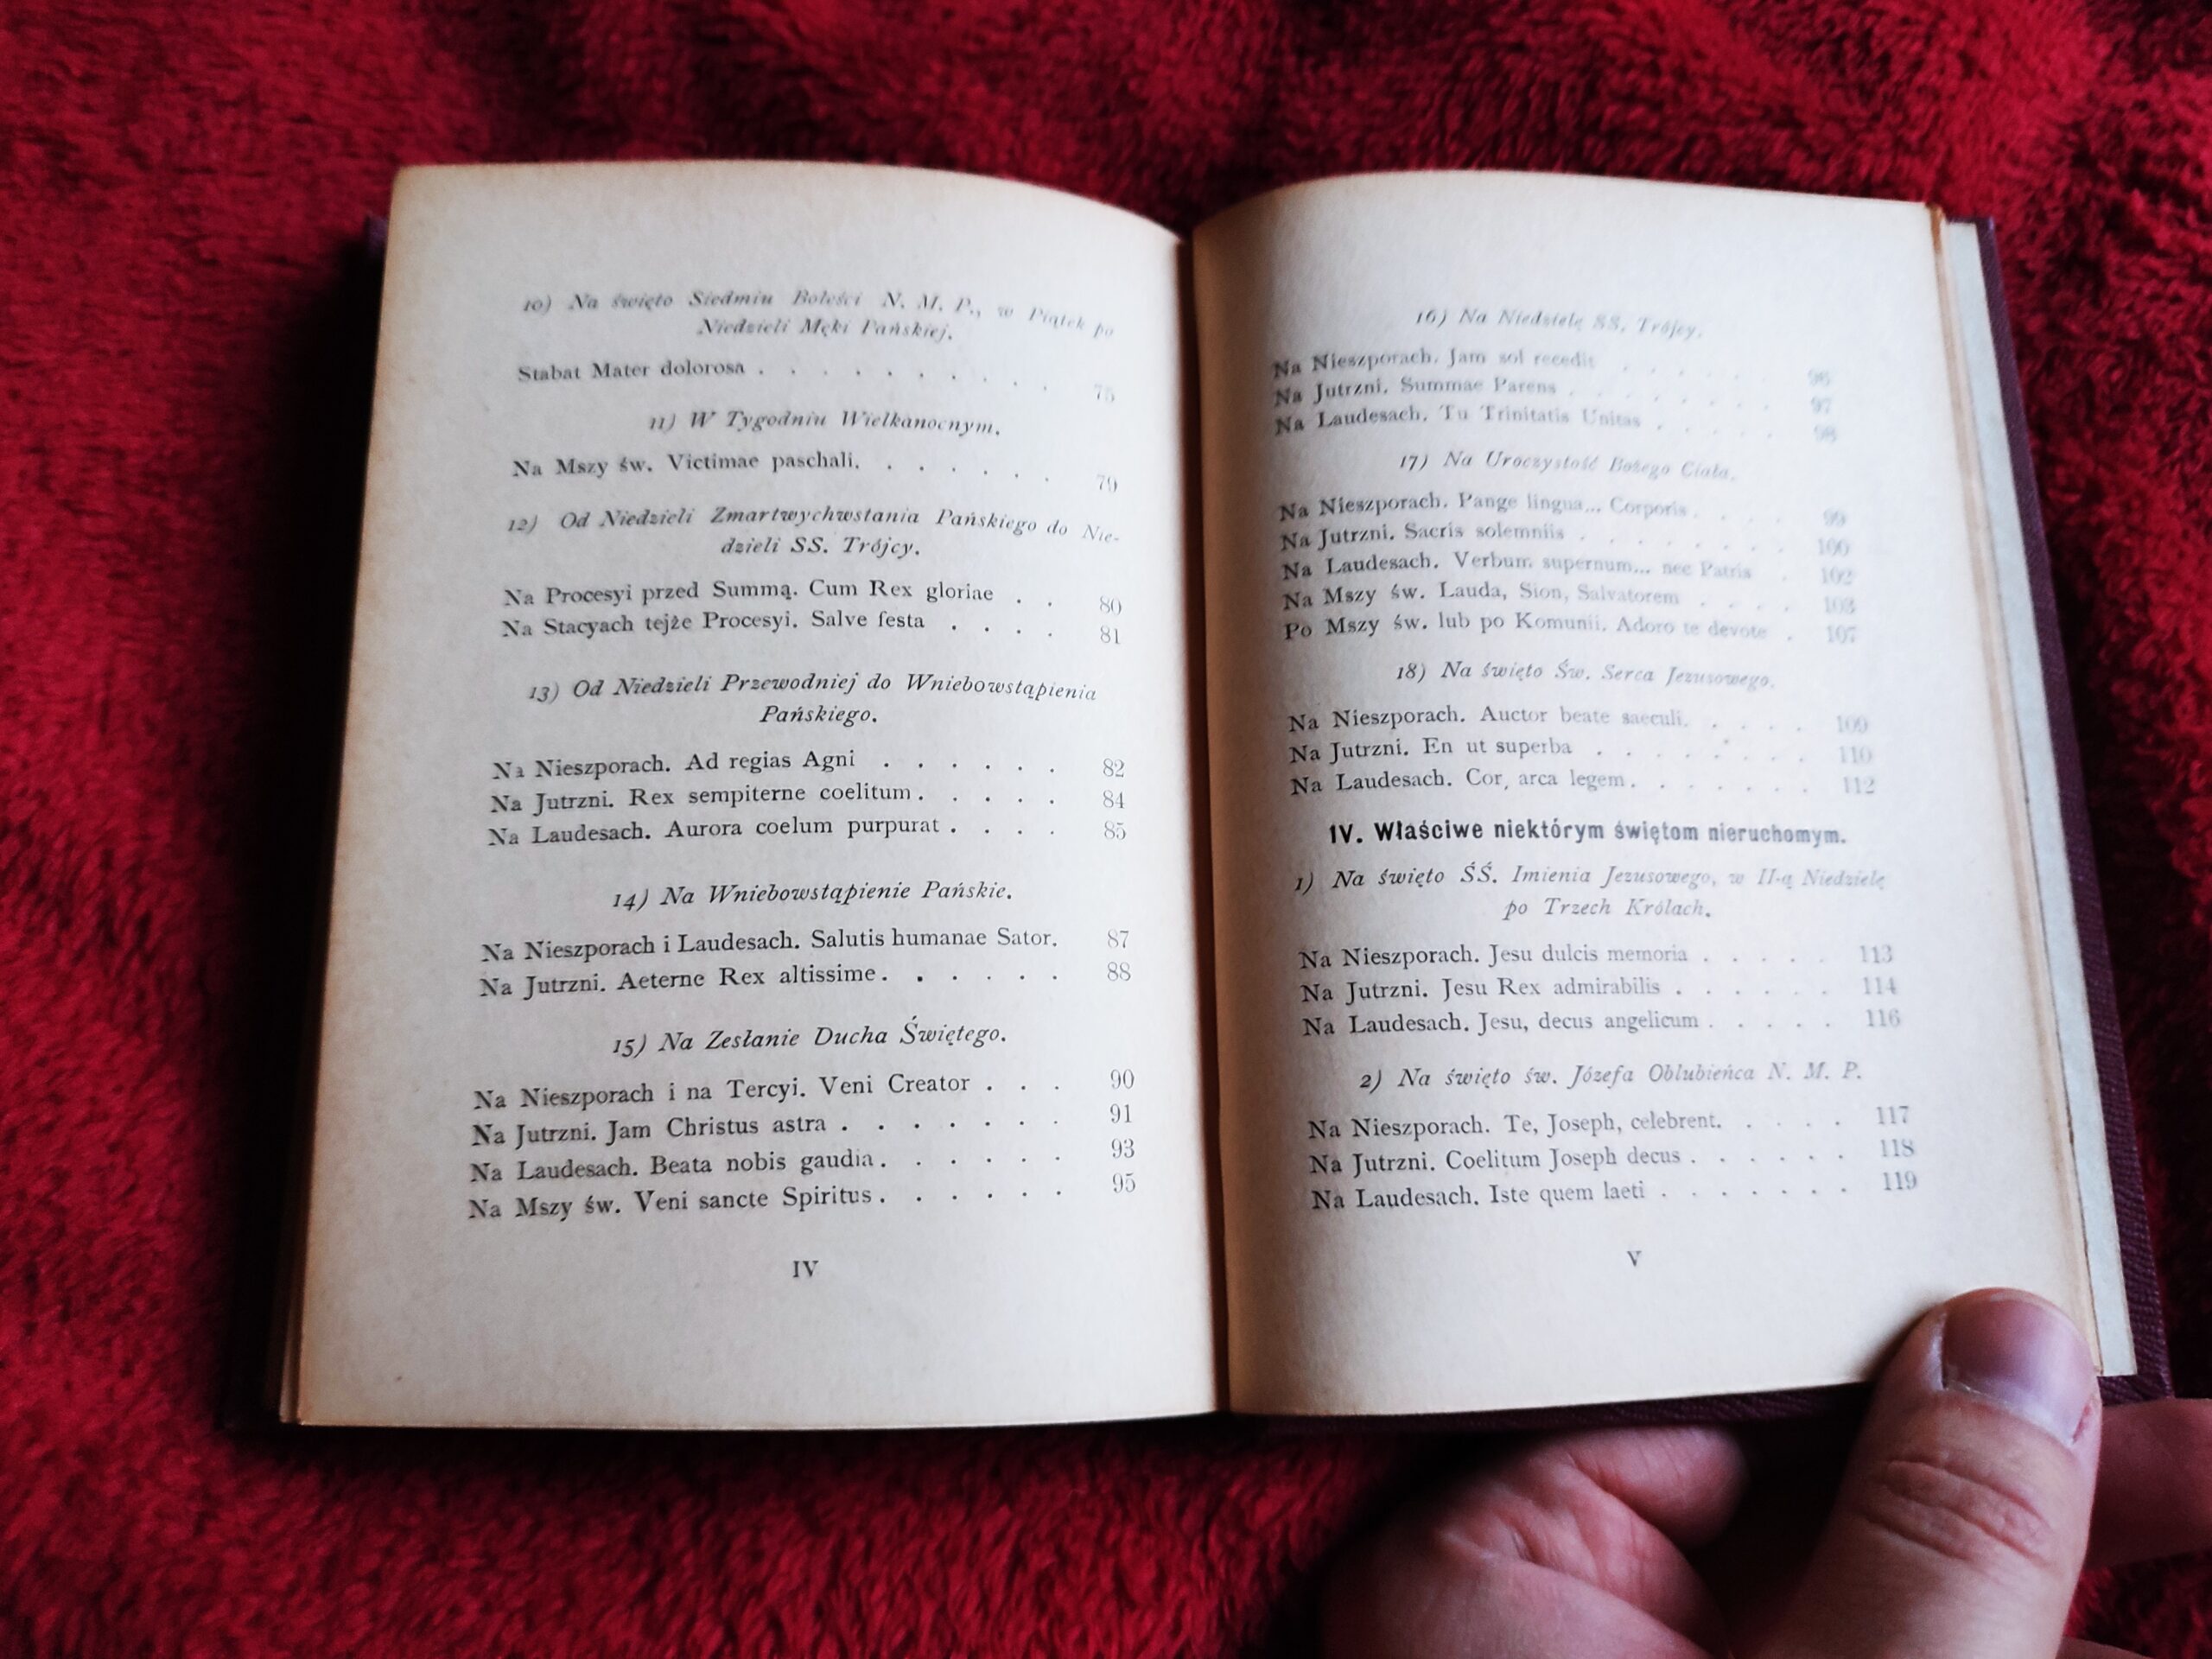 10) Na święto Siedmiu Boleści N. M. P., w Piątek po
Niedzieli Męki Pańskiej.
Stabat Mater dolorosa . . . . . . . . . . 75
11) W Tygodniu Wielkanocnym.
Na Mszy św. Victimae paschali. . . . . . . 79
12) Od Niedzieli Zmartwychwstania Pańskiego do Nie-
dzieli SS. Trójcy.
Na Procesyi przed Summą. Cum Rex gloriae . . 80
Na Stacyach tejże Procesyi. Salve festa . . . . 81
13) Od Niedzieli Przewodniej do Wniebowstąpienia
Pańskiego.
Na Nieszporach. Ad regias Agni . . . . . . 82
Na Jutrzni. Rex sempiterne coelitum . . . . . 84
Na Laudesach. Aurora coelum purpurat . . . . 85
14) Na Wniebowstąpienie Pańskie.
Na Nieszporach i Laudesach. Salutis humanae Sator. 87
Na Jutrzni. Aeterne Rex altissime . . . . . . 88
15) Na Zesłanie Ducha Świętego.
Na Nieszporach i na Tercyi. Veni Creator . . . 90
Na Jutrzni. Jam Christus astra . . . . . . . 91
Na Laudesach. Beata nobis gaudia . . . . . . 93
Na Mszy św. Veni sancte Spiritus . . . . . . 95
IV
16) Na Niedzielę SS. Trójcy.
Na Nieszporach. Jam sol recedit . . . . . 96
Na Jutrzni. Summae Parens . . . . . . . 97
Na Laudesach. Tu Trinitatis Unitas . . . . . 98
17) Na Uroczystość Bożego Ciała.
Na Nieszporach. Pange lingua... Corporis . . . . 99
Na Jutrzni. Sacris solemniis . . . . . . . 100
Na Laudesach. Verbum supernum... nec Patris . 102
Na Mszy św. Lauda, Sion, Salvatorem . . . . 103
Po Mszy św. lub po Komunii. Adoro te devote . 107
18) Na święto Św. Serca Jezusowego.
Na Nieszporach. Auctor beate saeculi. . . . . 109
Na Jutrzni. En ut superba . . . . . . . 110
Na Laudesach. Cor, arca legem . . . . . . . 112
IV. Właściwe niektórym świętom nieruchomym.
1) Na święto ŚŚ. Imienia Jezusowego, w II-ą Niedzielę
po Trzech Królach.
Na Nieszporach. Jesu dulcis memoria . . . . . 113
Na Jutrzni. Jesu Rex admirabilis . . . . . . 114
Na Laudesach. Jesu, decus angelicum . . . . . 116
2) Na święto św. Józefa Oblubieńca N. M. P.
Na Nieszporach. Te, Joseph, celebrent. . . . . 117
Na Jutrzni. Coelitum Joseph decus . . . . . . 118
Na Laudesach. Iste quem laeti . . . . . . . 119
V